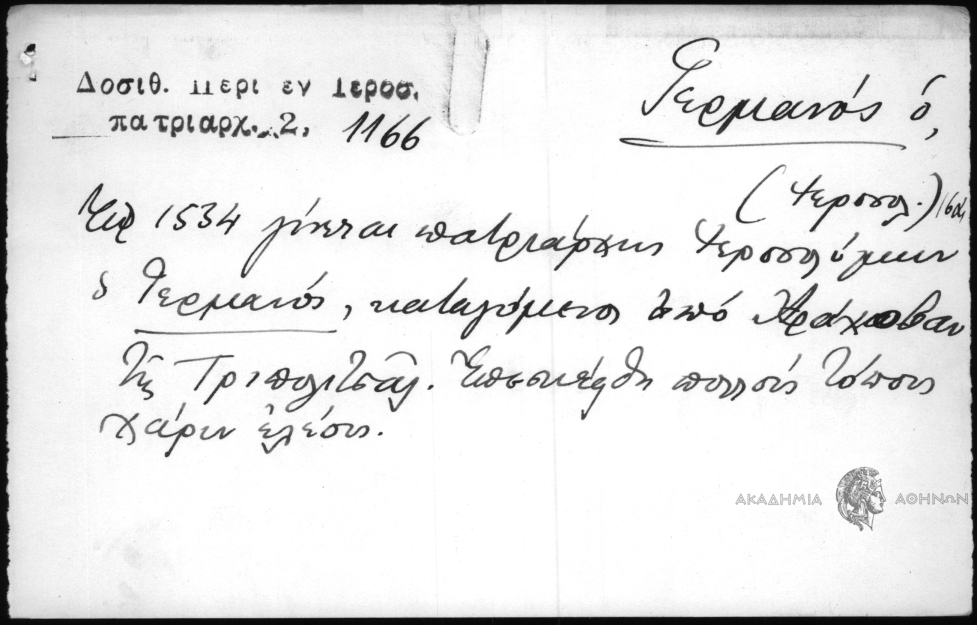 Δοσιθ. Περι εν Ιεροσ.
πατριαρχ. 2, 1166
Γερμανός ὁ,
(Ἱεροσολ.)
Εἰς 1534 γίνεται πατριάρχης Ἱεροσολύμων
ὁ Γερμανός, καταγόμενος ἀπό Ἀράχωβαν
τῆς Τριπολιτσᾶς. Ἐπεσκέφθη πολλούς τόπους
χάριν ἐλέους.
ΑΚΑΔΗΜΙΑ ΑΘΗΝΩΝ